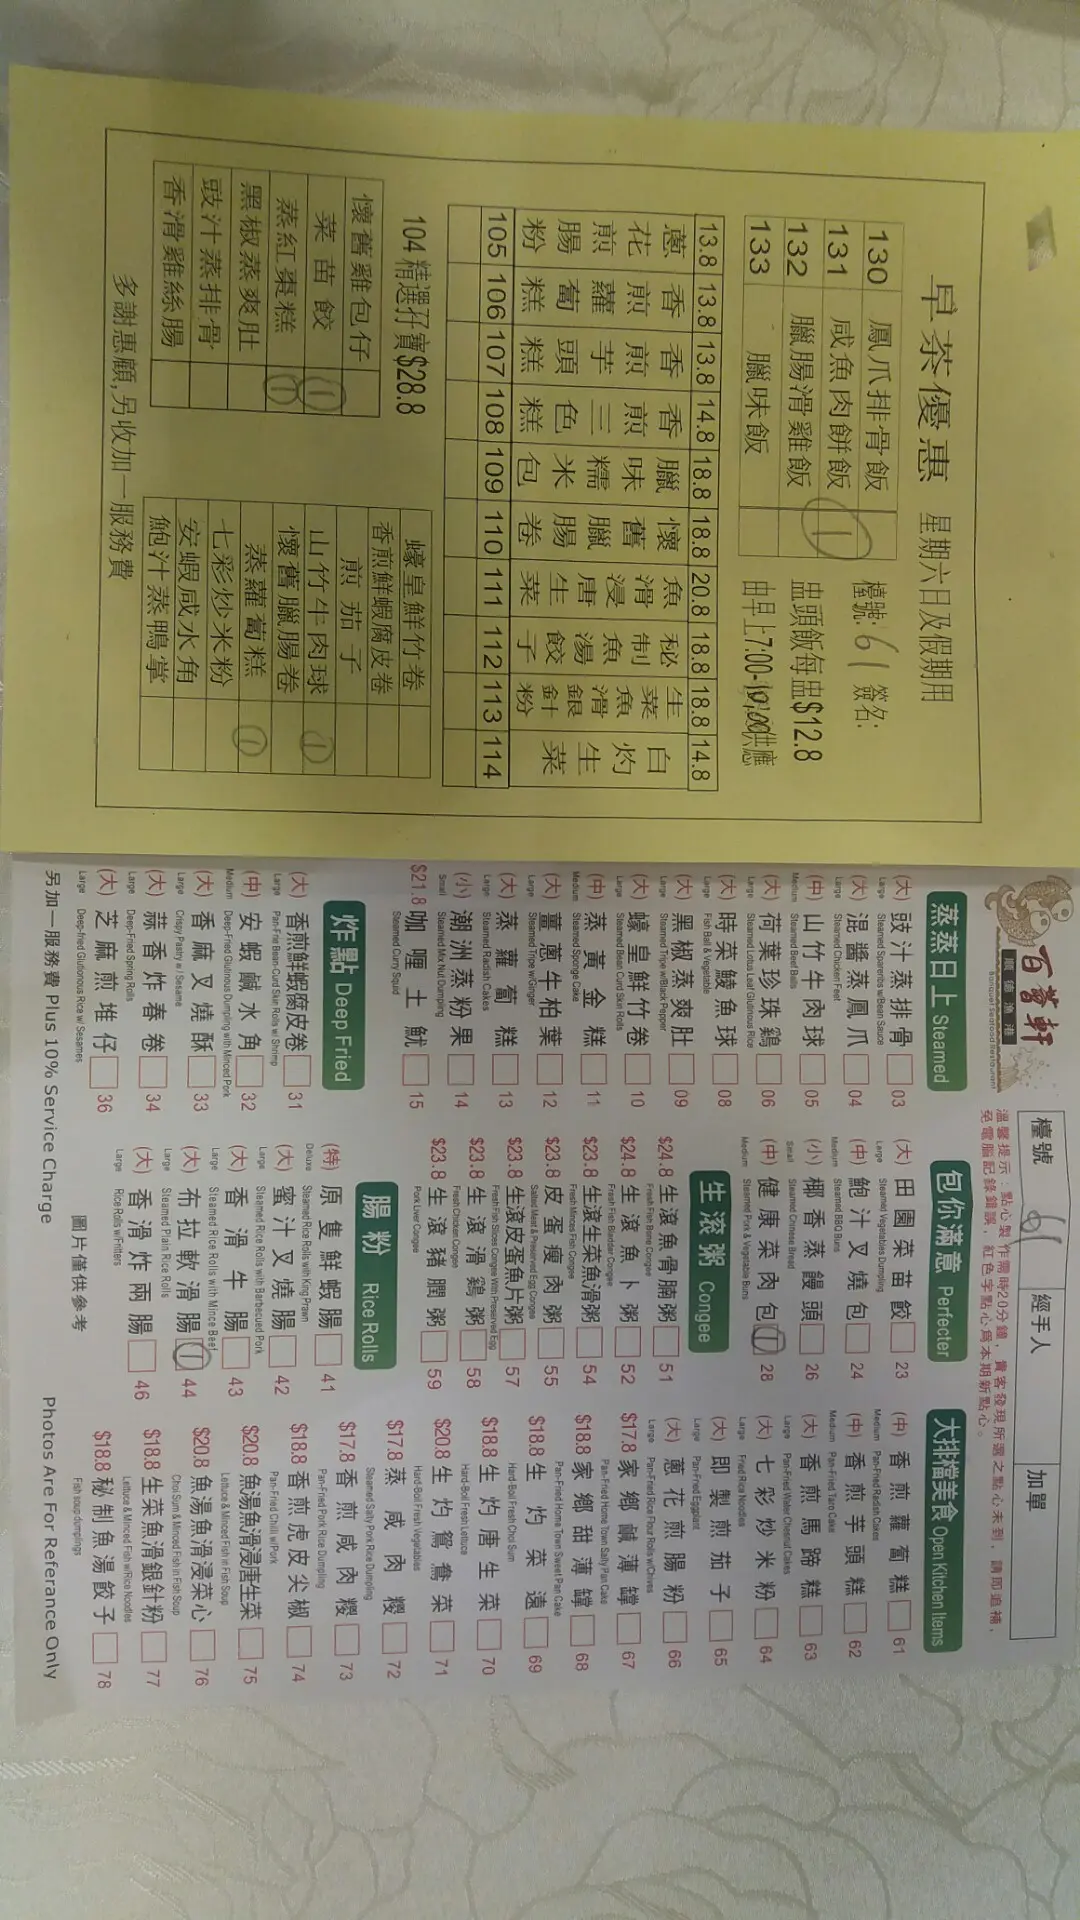 早茶優惠 星期六日及假期用
130 鳳爪排骨飯
131 咸魚肉餅飯 1
132 臘腸滑雞飯
133 臘味飯
檯號: 61 簽名:
盅頭飯每盅$12.8
由早上7:00-10:00供應
13.8 13.8 13.8 14.8 18.8 18.8 20.8 18.8 18.8 14.8
蔥花煎腸粉
香煎蘿蔔糕
香煎芋頭糕
香煎三色糕
臘味糯米包
懷舊臘腸卷
魚滑浸唐生菜
秘制魚湯餃子
生菜魚滑銀針粉
白灼生菜
105 106 107 108 109 110 111 112 113 114
104精選孖寶$28.8
懷舊雞包仔
菜苗餃 1
蒸紅棗糕 1
黑椒蒸爽肚
豉汁蒸排骨
香滑雞絲腸
蠔皇鮮竹卷
香煎鮮蝦腐皮卷
煎茄子
山竹牛肉球 1
懷舊臘腸卷
蒸蘿蔔糕 1
七彩炒米粉
安蝦咸水角
鮑汁蒸鴨掌
多謝惠顧,另收加一服務費
百薈軒
順德漁港
Banquet Seafood Restaurant
檯號 61 經手人 加單
溫馨提示：點心製作需時20分鐘，貴客發現所選之點心未到，請即追補，
免電腦記錄錯誤，紅色字點心為本期新點心。
蒸蒸日上 Steamed
(大) 豉汁蒸排骨 03
Large Steamed Spareribs w/Bean Sauce
(大) 混醬蒸鳳爪 04
Large Steamed Chicken Feet
(中) 山竹牛肉球 05
Medium Steamed Beef Balls
(大) 荷葉珍珠鷄 06
Large Steamed Lotus Leaf Glutinous Rice
(大) 時菜鯪魚球 08
Large Fish Ball & Vegetable
(大) 黑椒蒸爽肚 09
Large Steamed Tripe w/Black Pepper
(大) 蠔皇鮮竹卷 10
Large Steamed Bean Curd Skin Rolls
(中) 蒸黃金糕 11
Medium Steamed Sponge Cake
(大) 薑蔥牛柏葉 12
Large Steamed Tripe w/Ginger
(大) 蒸蘿蔔糕 13
Large Steamed Radish Cakes
(小) 潮洲蒸粉果 14
Small Steamed Mix Nut Dumpling
$21.8 咖喱土魷 15
Steamed Curry Squid
炸點 Deep Fried
(大) 香煎鮮蝦腐皮卷 31
Large Pan-Frie Bean-Curd Skin Rolls w/ Shrimp
(中) 安蝦鹹水角 32
Medium Deep-Fried Glutinous Dumpling with Minced Pork
(大) 香麻叉燒酥 33
Large Crispy Pastry w/ Sesame
(大) 蒜香炸春卷 34
Large Deep-Fried Spring Rolls
(大) 芝麻煎堆仔 36
Large Deep-fried Glutinous Rice w/ Sesames
包你滿意 Perfecter
(大) 田園菜苗餃 23
Large Steamed Vegetables Dumpling
(中) 鮑汁叉燒包 24
Medium Steamed BBQ Buns
(小) 椰香蒸饅頭 26
Small Steamed Chinese Bread
(中) 健康菜肉包 1 28
Medium Steamed Pork & Vegetable Buns
生滾粥 Congee
$24.8 生滾魚骨腩粥 51
Fresh Fish Bone Congee
$24.8 生滾魚卜粥 52
Fresh Fish Bladder Congee
$23.8 生滾生菜魚滑粥 54
Fresh Minced Fish Congee
$23.8 皮蛋瘦肉粥 55
Salted Meat & Preserved Egg Congee
$23.8 生滾皮蛋魚片粥 57
Fresh Fish Slices Congee With Preserved Egg
$23.8 生滾滑鷄粥 58
Fresh Chicken Congee
$23.8 生滾豬膶粥 59
Pork Liver Congee
腸粉 Rice Rolls
(特) 原隻鮮蝦腸 41
Deluxe Steamed Rice Rolls with King Prawn
(大) 蜜汁叉燒腸 42
Large Steamed Rice Rolls with Barbecued Pork
(大) 香滑牛腸 43
Large Steamed Rice Rolls with Mince Beef
(大) 布拉軟滑腸 1 44
Large Steamed Plain Rice Rolls
(大) 香滑炸兩腸 46
Large Rice Rolls w/Fritters
大排檔美食 Open Kitchen Items
(中) 香煎蘿蔔糕 61
Medium Pan-Fried Radish Cakes
(中) 香煎芋頭糕 62
Medium Pan-Fried Taro Cake
(大) 香煎馬蹄糕 63
Large Pan-Fried Water Chesnut Cakes
(大) 七彩炒米粉 64
Large Fried Rice Noodles
(大) 即製煎茄子 65
Large Pan-Fried Eggplant
(大) 蔥花煎腸粉 66
Large Pan-Fried Rice Flour Rolls w/Chives
$17.8 家鄉鹹薄罉 67
Pan-Fried Home Town Salty Pan Cake
$18.8 家鄉甜薄罉 68
Pan-Fried Home Town Sweet Pan Cake
$18.8 生灼菜遠 69
Hard-Boil Fresh Choi Sum
$18.8 生灼唐生菜 70
Hard-Boil Fresh Lettuce
$20.8 生灼鴛鴦菜 71
Hard-Boil Fresh Vegetables
$17.8 蒸咸肉糉 72
Steamed Salty Pork Rice Dumpling
$17.8 香煎咸肉糉 73
Pan-Fried Pork Rice Dumpling
$18.8 香煎虎皮尖椒 74
Pan-Fried Chilli w/Pork
$20.8 魚湯魚滑浸唐生菜 75
Lettuce & Minced Fish in Fish Soup
$20.8 魚湯魚滑浸菜心 76
Choi Sum & Minced Fish in Fish Soup
$18.8 生菜魚滑銀針粉 77
Lettuce & Minced Fish w/Rice Noodles
$18.8 秘制魚湯餃子 78
Fish soup dumplings
另加一服務費 Plus 10% Service Charge 圖片僅供參考 Photos Are For Referance Only